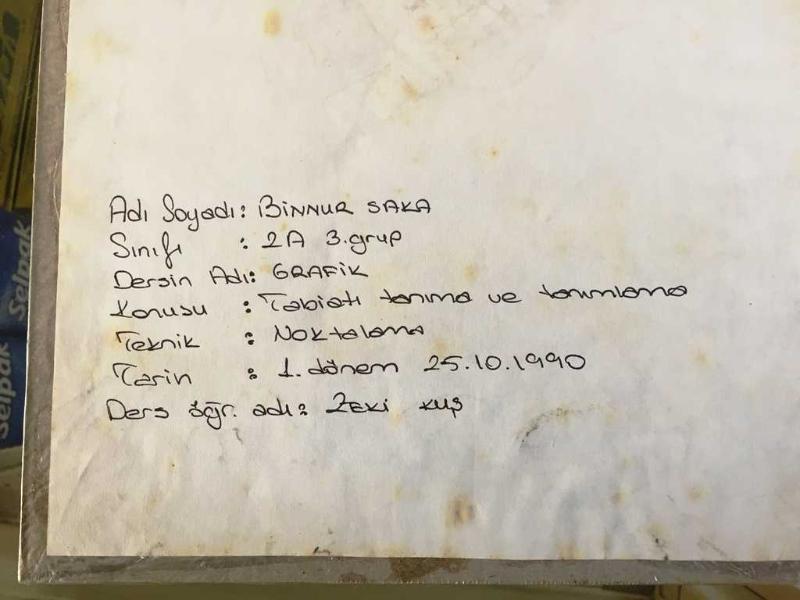 Adı Soyadı: BİNNUR SAKA
Sınıfı : 2A 3.grup
Dersin Adı: GRAFİK
Konusu : Tabiatı tanıma ve tanımlama
Teknik : Noktalama
Tarih : 1. dönem 25.10.1990
Ders öğr. adı: Zeki Kuş
Selpak
Selpak